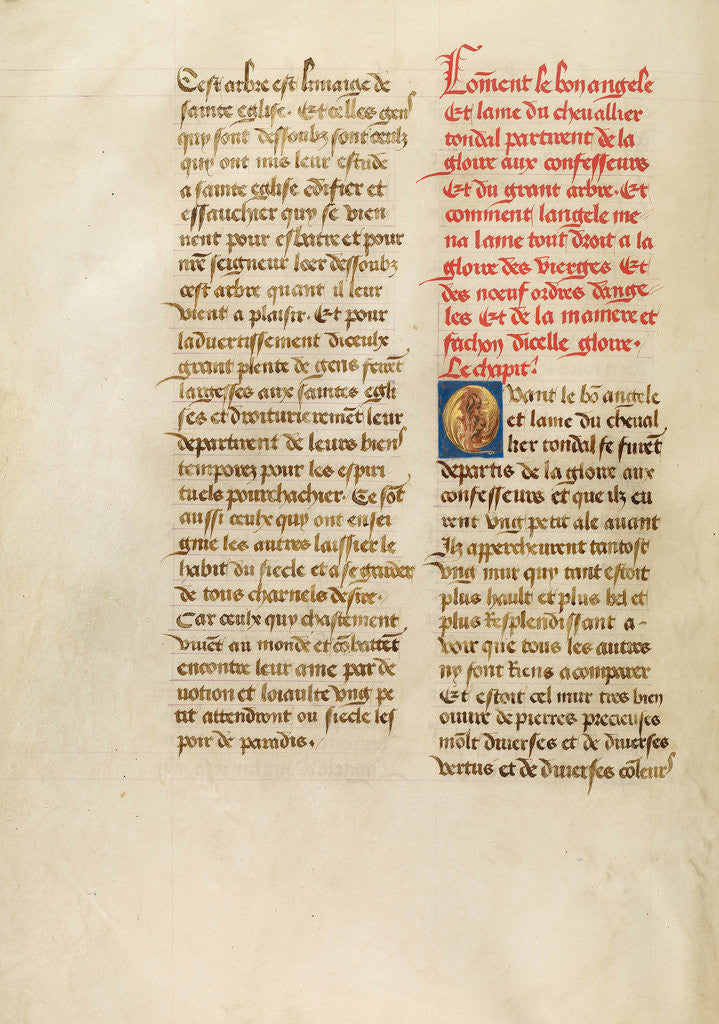 Cest arbre est limaige de
sainte eglise. Et celles gens
quy sont dessoubz sont ceulz
quy ont mis leur estude
a sainte eglise edifier et
essauchier quy se vien
nent pour esbatre et pour
nr̃e seigneur loer dessoubz
cest arbre quant il leur
vient a plaisir. Et pour
laduertissement diceulx
grant plente de gens firent
largesses aux saintes egli
ses et droituriereme͂t leur
departirent de leurs biens
temporez pour les espiri
tuels pourchachier. Ce so͂t
aussi ceulx quy ont ensei
gnie les autres laissier le
habit du siecle et a se garder
de tous charnels desirs.
Car ceulx quy chastement
viue͂t au monde et co͂battent
encontre leur ame par de
uotion et loiaulte vng pe
tit attendront ou siecle les
poir de paradis.
Com̃ent le bon angele
Et lame du cheuallier
tondal partirent de la
gloire aux confesseurs
Et du grant arbre. Et
comment langele me
na lame tout droit a la
gloire des vierges Et
des noeuf ordres dange
les Et de la maniere et
fachon dicelle gloire.
Le chapit̃.
Quant le bo͂ angele
et lame du cheual
lier tondal se fure͂t
departis de la gloire aux
confesseurs et que ilz eu
rent vng petit ale auant
Ilz appercheurent tantost
vng mur quy tant estoit
plus hault et plus bel et
plus Resplendissant a-
voir que tous les autres
ny font Riens a comparer
Et estoit cel mur tres bien
ouure de pierres precieuses
mo͂lt diuerses et de diuerses
vertus et de diuerses co͂leurs